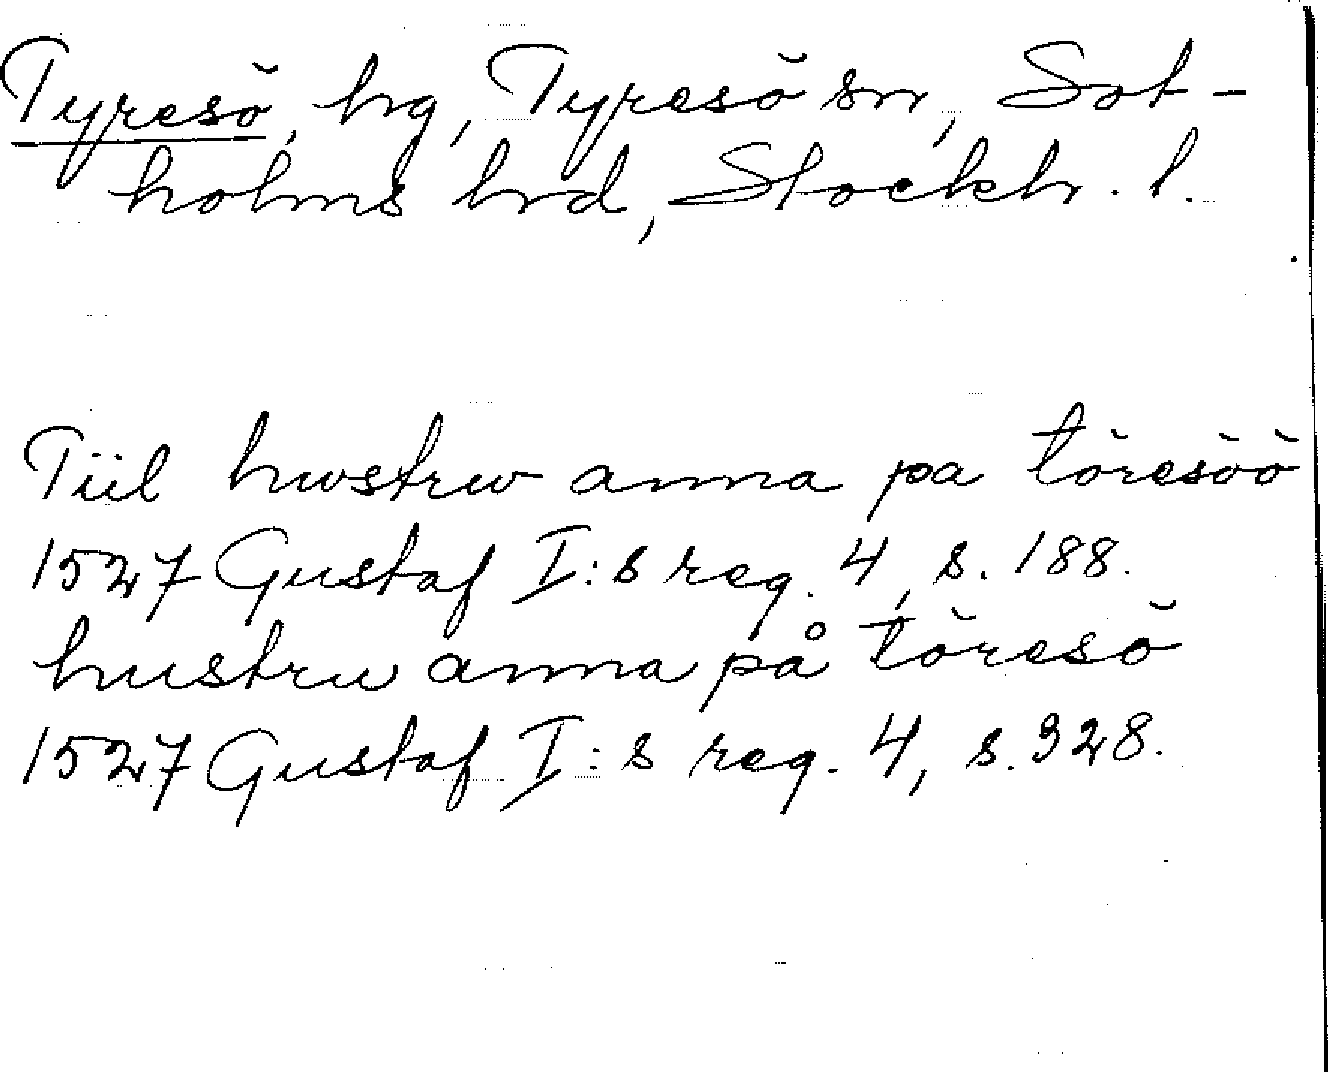 Tyresö, hg, Tyresö sn, Sot-
holms hrd, Stockh. l.
Tiil hwstrw anna pa töresöö
1527 Gustaf I:s reg. 4, s. 188.
hustru anna på töresö
1527 Gustaf I:s reg. 4, s. 328.